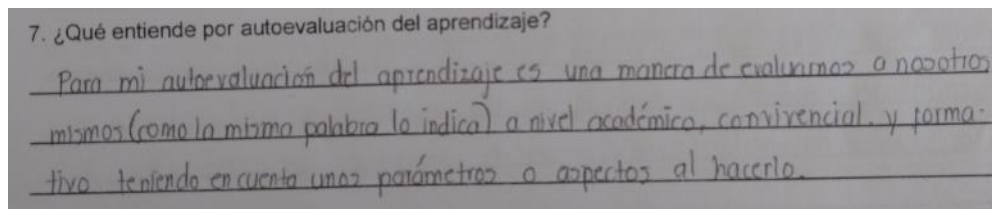 7. ¿Qué entiende por autoevaluación del aprendizaje?
Para mi autoevaluación del aprendizaje es una manera de evaluarnos a nosotros
mismos (como la misma palabra lo indica) a nivel académico, convivencial. y forma-
tivo teniendo en cuenta unos parámetros o aspectos al hacerlo.